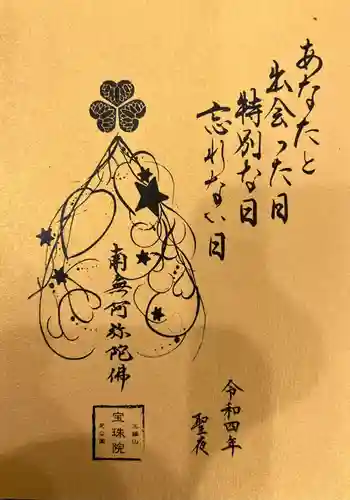 あなたと
出会った日
特別な日
忘れない日
南無阿弥陀佛
令和四年
聖夜
三縁山
宝珠院
芝公園